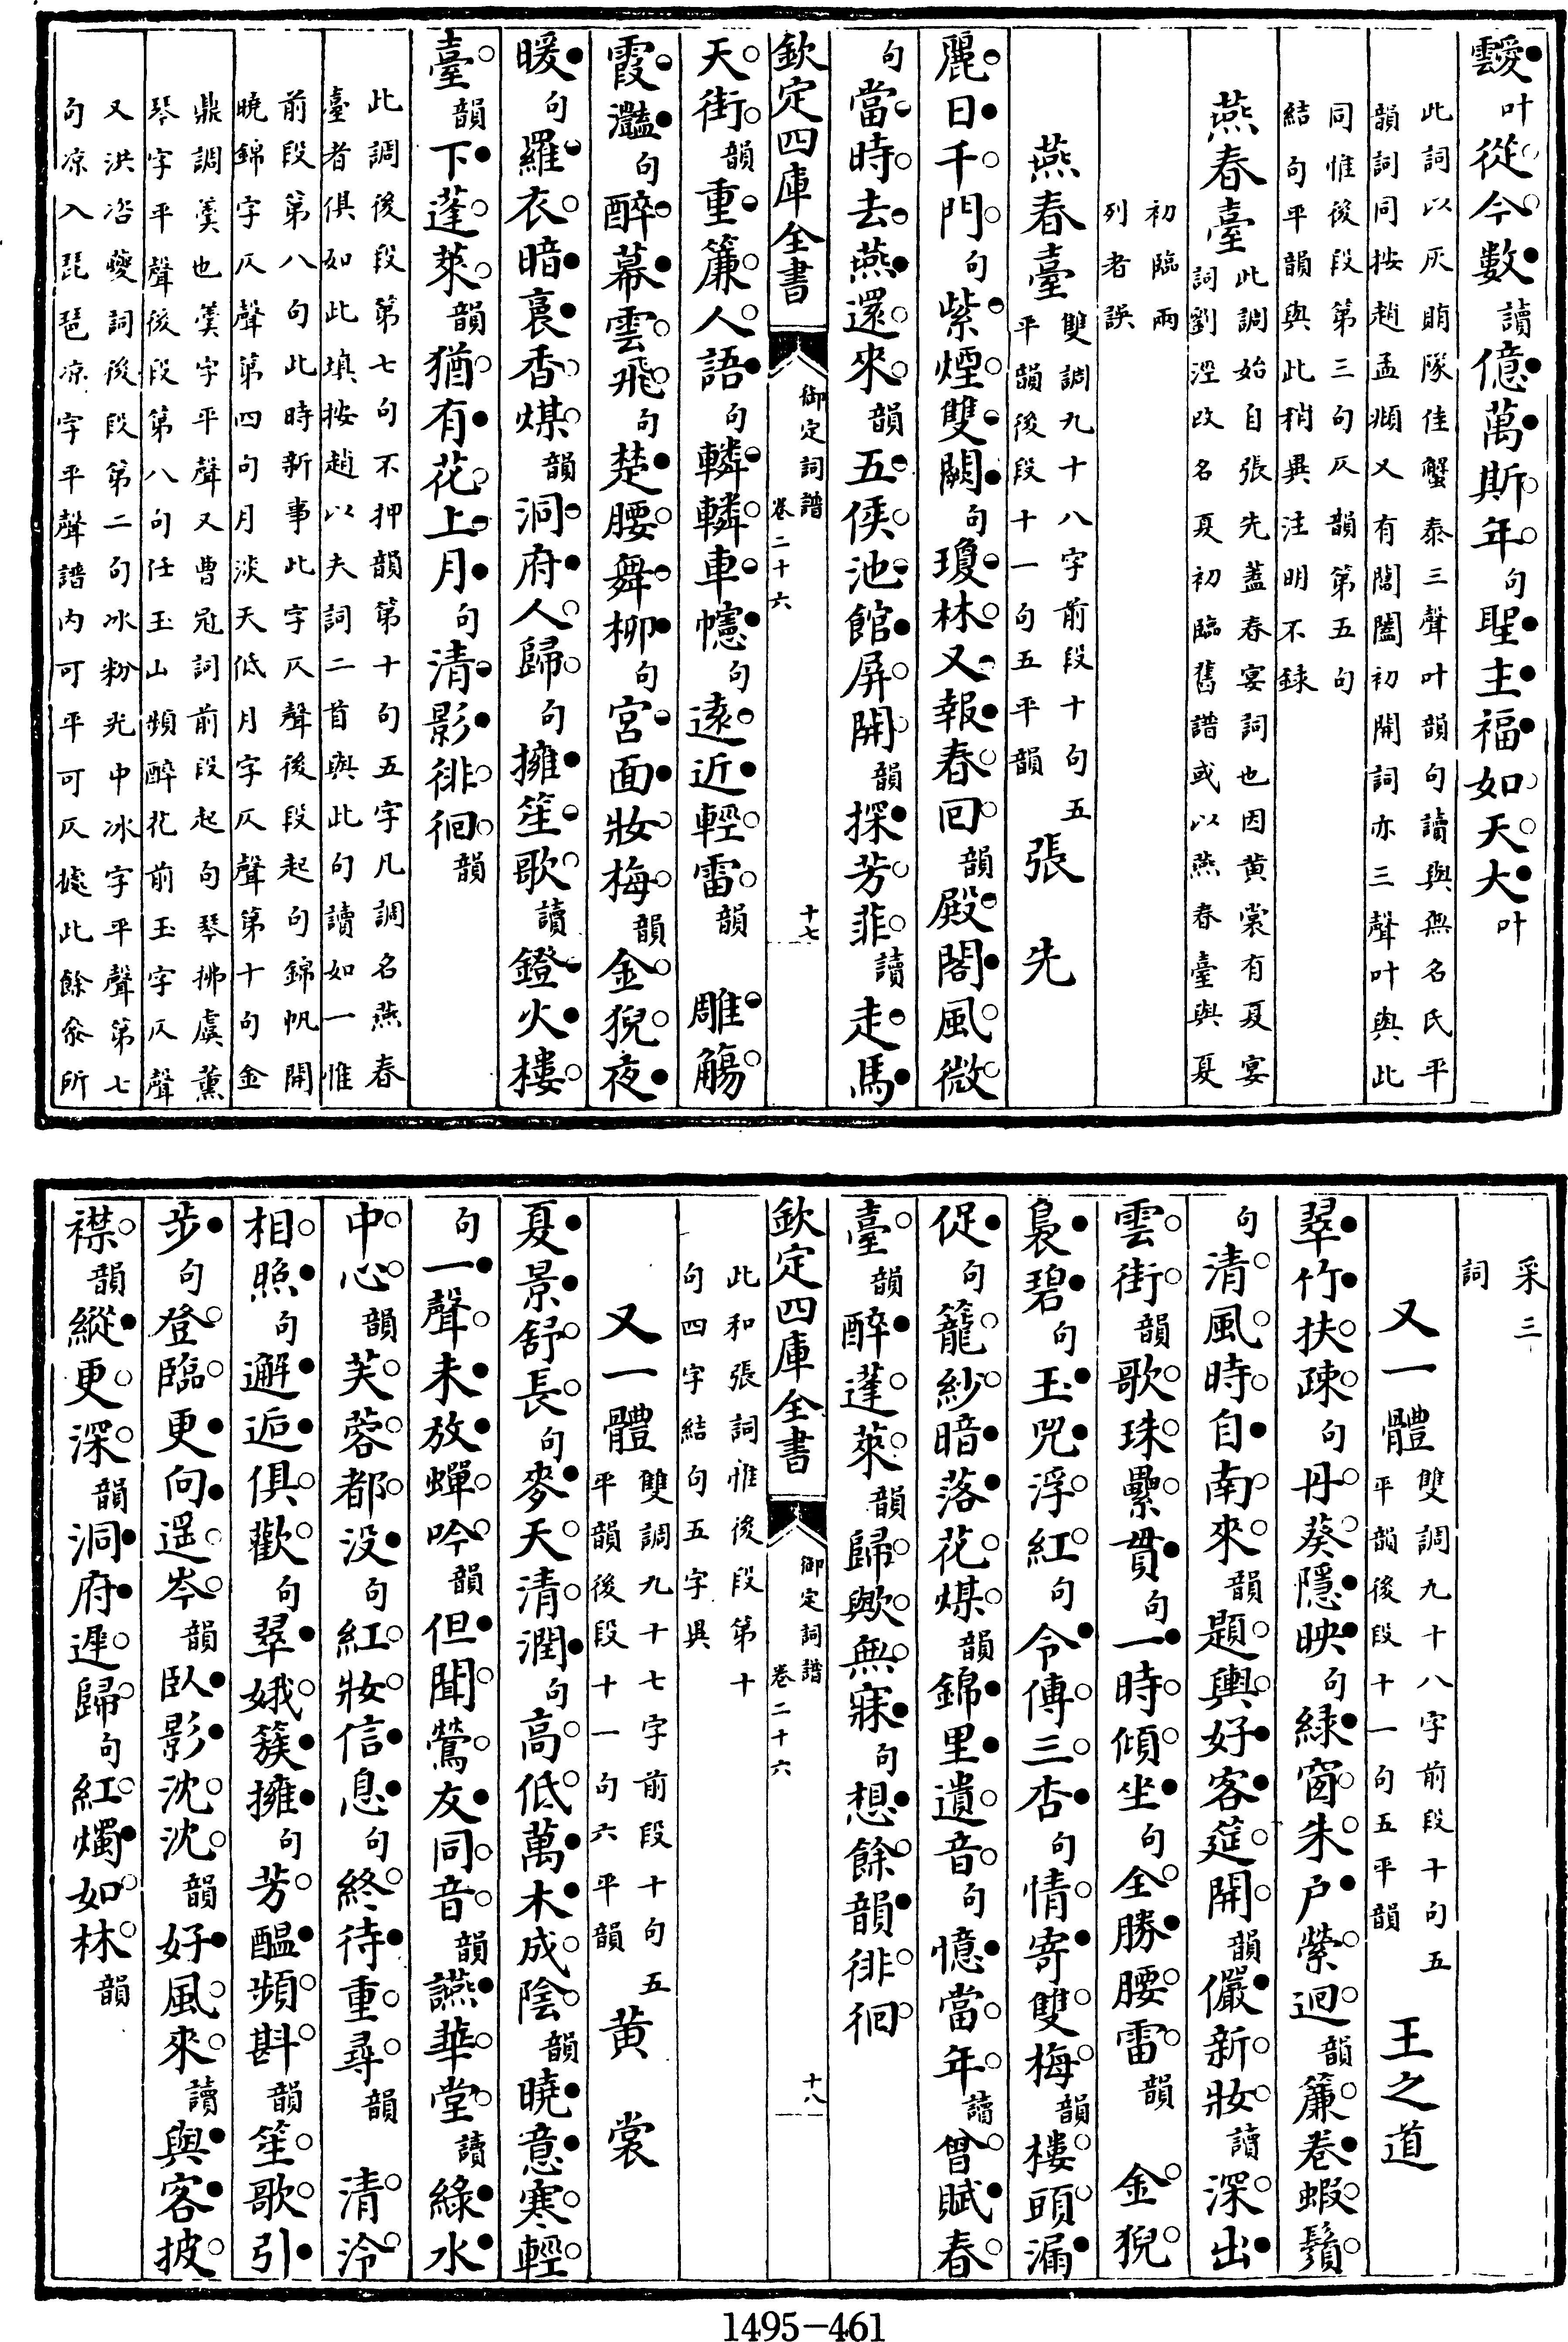 靉叶從今數讀億萬斯年句聖主福如天大叶
此詞以灰賄隊佳蟹泰三聲叶韻句讀與無名氏平
韻詞同按趙孟頫又有閶闔初開詞亦三聲叶與此
同惟後段第三句仄韻第五句
結句平韻與此稍異注明不錄
燕春臺此調始自張先蓋春宴詞也因黃裳有夏宴
詞劉涇改名夏初臨舊譜或以燕春臺與夏
初臨兩
列者誤
燕春臺雙調九十八字前段十句五
平韻後段十一句五平韻 張先
麗日千門句紫煙雙闕句瓊林又報春回韻殿閣風微
句當時去燕還來韻五侯池館屏開韻探芳菲讀走馬
欽定四庫全書 御定詞譜 卷二十六 十七
天街韻重簾人語句轔轔車幰句遠近輕雷韻 雕觴
霞灩句醉幕雲飛句楚腰舞柳句宮面妝梅韻金猊夜
暖句羅衣暗裛香煤韻洞府人歸句擁笙歌讀鐙火樓
臺韻下蓬萊韻猶有花上月句清影徘徊韻
此調後段第七句不押韻第十句五字凡調名燕春
臺者俱如此填按趙以夫詞二首與此句讀如一惟
前段第八句此時新事此字仄聲後段起句錦帆開
曉錦字仄聲第四句月淡天低月字仄聲第十句金
鼎調羹也羹字平聲又曹冠詞前段起句琴拂虞薰
琴字平聲後段第八句任玉山頻醉花前玉字仄聲
又洪咨夔詞後段第二句冰粉光中冰字平聲第七
句凉入琵琶凉字平聲譜内可平可仄據此餘叅所
采三
詞
又一體雙調九十八字前段十句五
平韻後段十一句五平韻 王之道
翠竹扶疎句丹葵隱映句綠窗朱户縈迴韻簾卷蝦鬚
句清風時自南來韻題輿好客筵開韻儼新妝讀深出
雲街韻歌珠纍貫句一時傾坐句全勝腰雷韻 金猊
裊碧句玉兕浮紅句令傳三杏句情寄雙梅韻樓頭漏
促句籠紗暗落花煤韻錦里遺音句憶當年讀曾賦春
臺韻醉蓬萊韻歸歟無寐句想餘韻徘徊
欽定四庫全書 御定詞譜 卷二十六 十八
此和張詞惟後段第十
句四字結句五字異
又一體雙調九十七字前段十句五
平韻後段十一句六平韻 黃裳
夏景舒長句麥天清潤句高低萬木成陰韻曉意寒輕
句一聲未放蟬吟韻但聞鶯友同音韻讌華堂讀綠水
中心韻芙蓉都没句紅妝信息句終待重尋韻 清泠
相照句邂逅俱歡句翠娥簇擁句芳醞頻斟韻笙歌引
步句登臨更向遥岑韻臥影沈沈韻好風來讀與客披
襟韻縱更深韻洞府遲歸句紅燭如林韻
1495-461